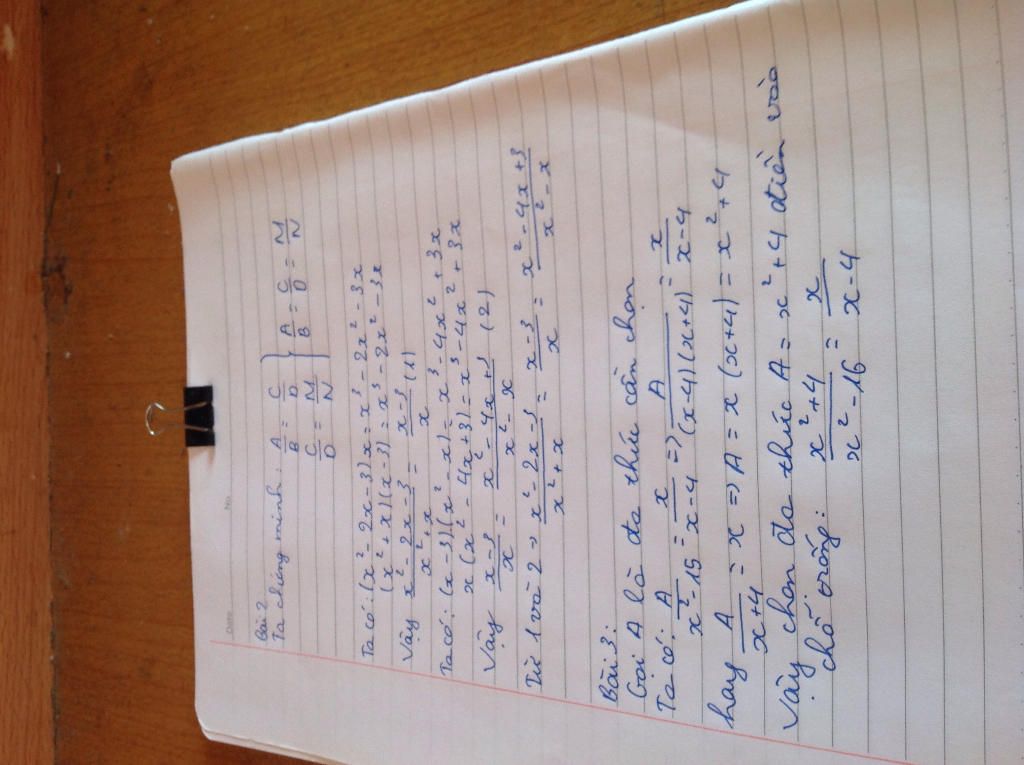 Date No.
Bài 2
Ta chứng minh: A/B = C/D } A/B = C/D = M/N
C/D = M/N
Ta có: (x² - 2x - 3)x = x³ - 2x² - 3x
(x² + x)(x - 3) = x³ - 2x² - 3x
Vậy (x² - 2x - 3)/(x² + x) = (x - 3)/x (1)
Ta có: (x - 3)(x² - x) = x³ - 4x² + 3x
x(x² - 4x + 3) = x³ - 4x² + 3x
Vậy (x - 3)/x = (x² - 4x + 3)/(x² - x) (2)
Từ 1 và 2 → (x² - 2x - 3)/(x² + x) = (x - 3)/x = (x² - 4x + 3)/(x² - x)
Bài 3:
Gọi A là đa thức cần chọn
Ta có: A/(x² - 15) = x/(x - 4) => A/((x - 4)(x + 4)) = x/(x - 4)
hay A/(x + 4) = x => A = x(x + 4) = x² + 4
Vậy chọn đa thức A = x² + 4 điền vào
chỗ trống: (x² + 4)/(x² - 16) = x/(x - 4)